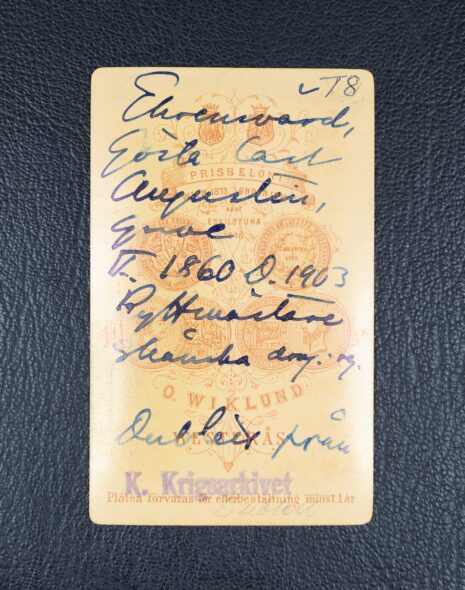 T8
Ehrensvärd,
Gösta Carl
Augustin,
greve
F. 1860 D. 1903
Ryttmästare
Skånska drag. reg.
PRISBELÖNT
LONDON
ESKILSTUNA
O. WIKLUND
WESTERÅS
Dublett från
K. Krigsarkivet
Plåten förvaras för efterbeställning minst 1 år
Dublett